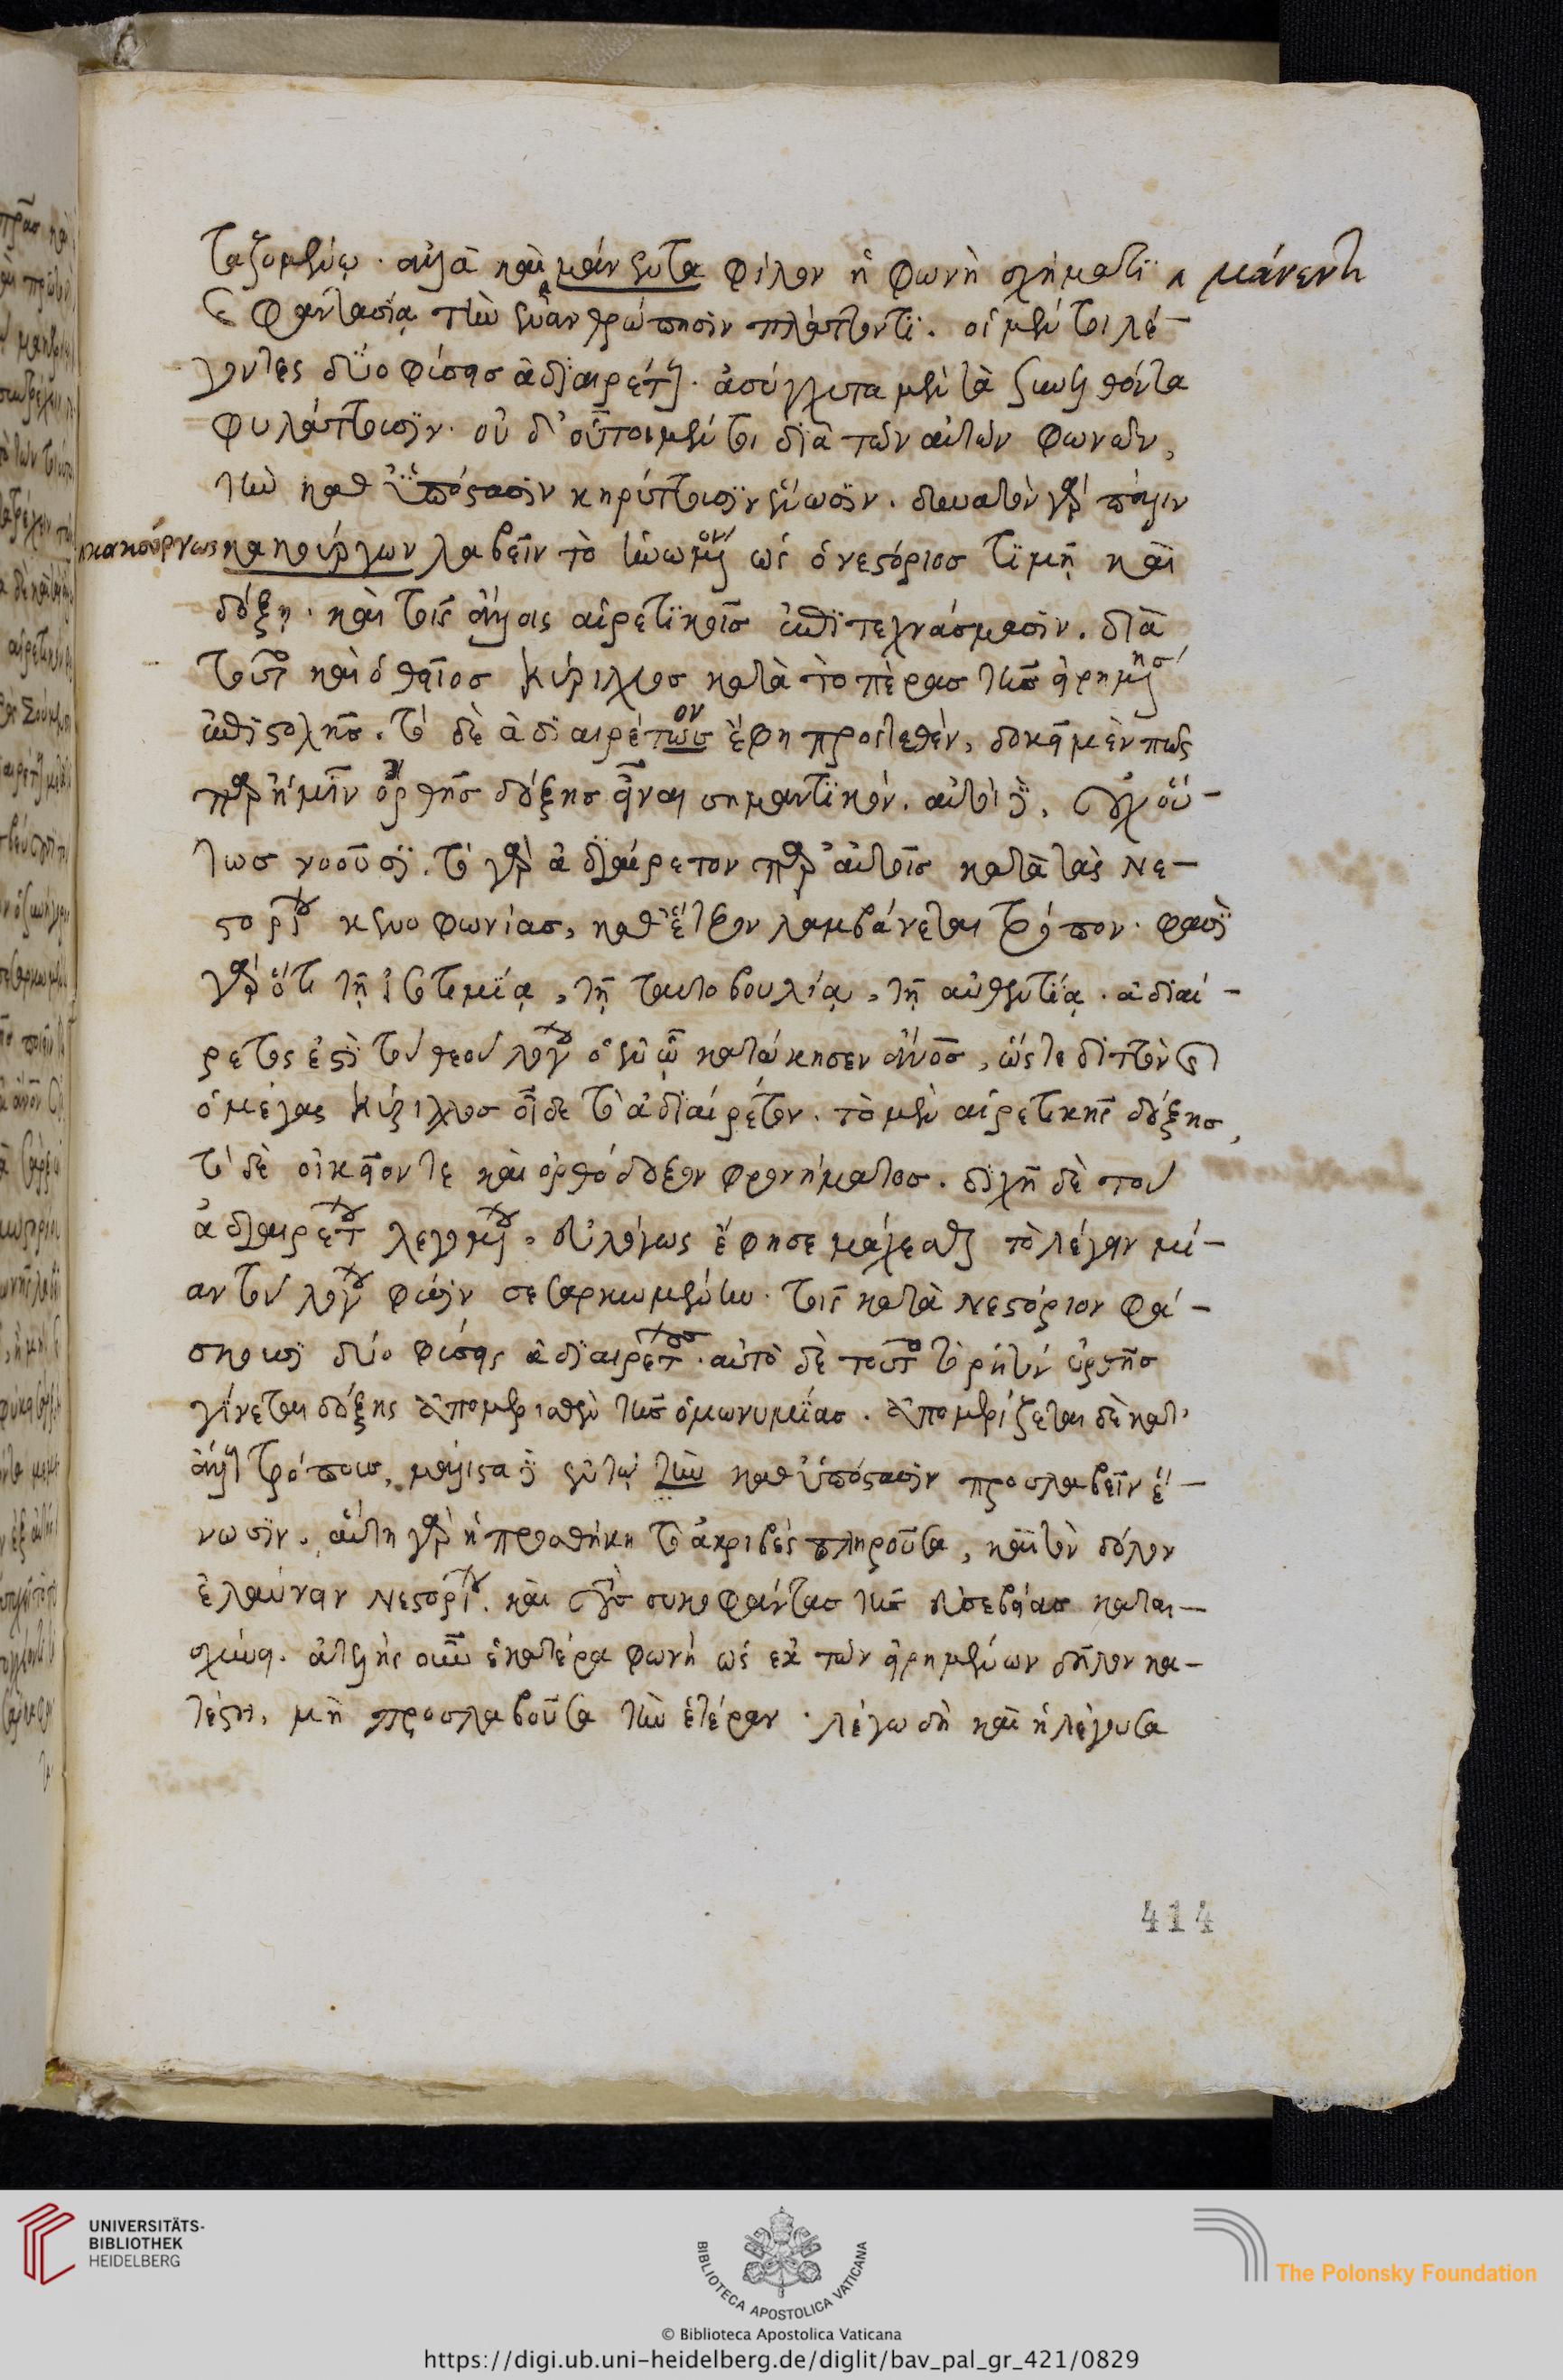 ταζομένῳ. ἀλλὰ καὶ μάνεντα φίλον ἡ φωνὴ σχήματϊ μάνεντι
καὶ φαντασίᾳ τὴν ἐνανθρώπησϊν πλάττοντϊ. οἱ μέντοι λέ-
γοντες δύο φύσεις ἀδϊαιρέτως. ἀσύγχυτα μὲν τὰ συνελθόντα
φυλάττουσϊν. οὐ δ' οὗτοι μέντοι δϊὰ τῶν αὐτῶν φωνῶν,
τὴν καθ' ὑπόστασϊν κηρύττουσϊν ἕνωσϊν. δυνατὸν γὰρ πάλιν
κακούργως κακούργων λαβεῖν τὸ ἡνωμένον ὡς ὁ νεστόριος τϊμῇ καὶ
δόξῃ. καὶ τοῖς ἄλλοις αἱρετϊκοῖς ἐπϊτεχνάσμασϊν. δϊὰ
τοῦτο καὶ ὁ θεῖος κύριλλος κατὰ τὸ πέρας τῆς εἰρημένης
ἐπϊστολῆς. τὸ δὲ ἀδϊαιρέτως ον ἔφη προστεθὲν, δοκεῖ μέν πως
παρ' ἡμῖν ὀρθῆς δόξης εἶναι σημαντϊκόν. αὐτοὶ δὲ, οὐχ οὕ-
τως νοοῦσϊ. τὸ γὰρ ἀδϊαίρετον παρ' αὐτοῖς κατὰ τὰς Νε-
στορίου κενοφωνίας, καθ' ἕτερον λαμβάνεται τρόπον. φασϊ
γὰρ ὅτι τῇ ἰσοτιμΐᾳ, τῇ ταυτοβουλίᾳ, τῇ αὐθεντΐᾳ. ἀδϊαί-
ρετος ἐστϊ τοῦ θεοῦ λόγου ὁ ἐν ᾧ κατώκησεν ἄνος, ὥστε διττὸν
ὁ μέγας κύριλλος οἶδε τὸ ἀδϊαίρετον. τὸ μὲν αἱρετικῆς δόξης,
τὸ δὲ οἰκεῖόν τε καὶ ὀρθόδοξον φρονήματος. δϊχῆ δὲ τοῦ
ἀδϊαιρέτου λεγομένου, εὐλόγως ἔφησε μάχεσθαι τὸ λέγειν μί-
αν τοῦ λόγου φύσϊν σεσαρκωμένην. τοῖς κατὰ Νεστόριον φά-
σκουσϊ δύο φύσεις ἀδϊαιρέτους. αὐτὸ δὲ τοῦτο τὸ ῥητὸν ὀρθῆς
γίνεται δόξης ἀπομερισθὲν τῆς ὁμωνυμΐας. ἀπομερίζεται δὲ κατ'
ἄλλους τρόπους, μάλιστα δὲ ἐν τῷ τὴν καθ' ὑπόστασϊν προσλαβεῖν ἕ-
νωσϊν. αὕτη γὰρ ἡ προσθήκη τὸ ἀκριβὲς πληροῦσα, καὶ τὸν δόλον
ἐλαύνει Νεστορίου. καὶ τοὺς συκοφάντας τῆς εὐσεβείας καται-
σχύνει. ἀτελὴς οὖν ἑκατέρα φωνή ὡς ἐκ τῶν εἰρημένων δῆλον κα-
τέστη, μὴ προσλαβοῦσα τὴν ἑτέραν. λέγω δὴ καὶ ἡ λέγουσα
414
UNIVERSITÄTS-
BIBLIOTHEK
HEIDELBERG
BIBLIOTECA APOSTOLICA VATICANA
The Polonsky Foundation
© Biblioteca Apostolica Vaticana
https://digi.ub.uni-heidelberg.de/diglit/bav_pal_gr_421/0829